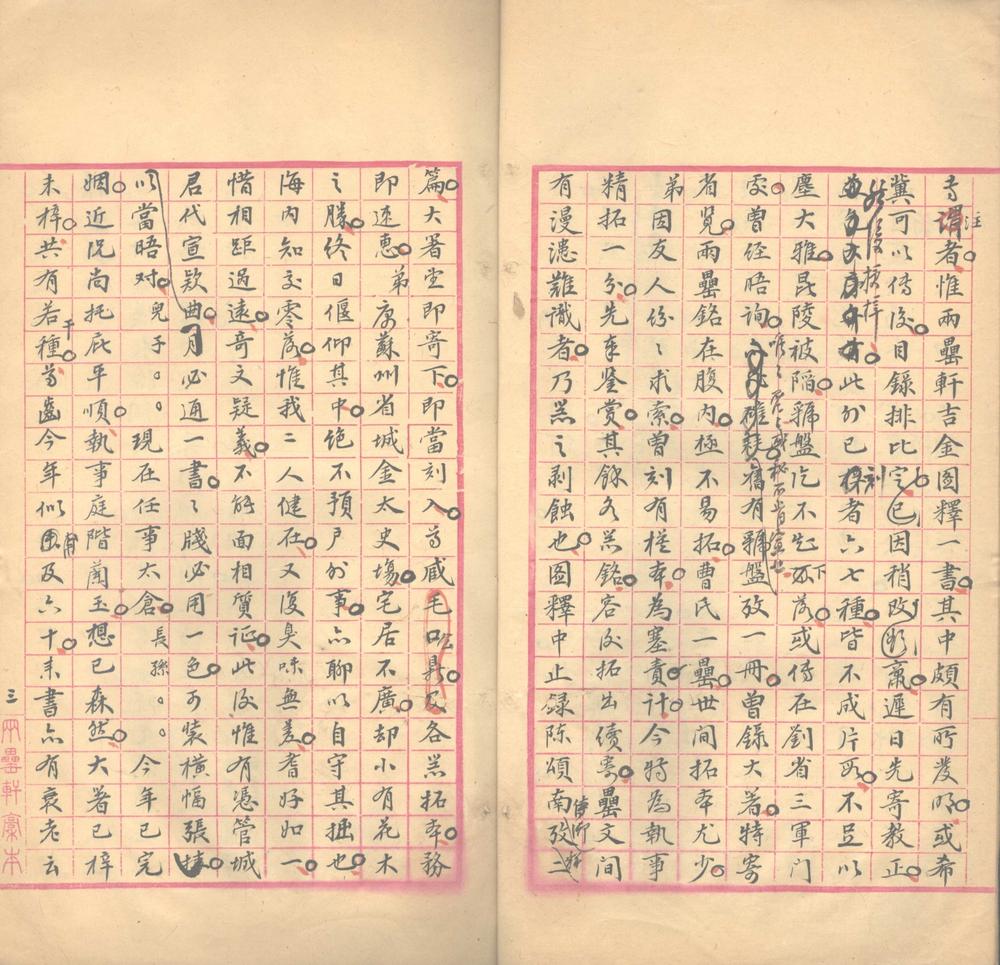 者惟兩罍軒吉金圖釋一書其中頗有所發明或希
冀可以傳後目錄排比定已因稍改羸遲日先寄教正
此外已刻者六七種皆不成片段不足以
塵大雅昆陵被陷虢盤訖不知下落或傳在劉省三軍門
處曾經晤詢有虢盤攷一冊曾錄大著特寄
省覽兩罍銘在腹內極不易拓曹氏一罍世間拓本尤少
弟因友人份〻求索曾刻有橅本為塞責計今特為執事
精拓一分先奉鑒賞其餘各器銘容後拓出續寄罍文間
有漫漶難識者乃器之剥蝕也圖釋中止錄陳頌南攷
篇大署坐即寄下即當刻入弟臧毛公鼎及各器拓本務
即速惠弟寓蘇州省城金太史塲宅居不廣却小有花木
之勝終日偃仰其中絶不預戶外事亦聊以自守其拙也
海內知交零落惟我二人健在又復臭味無差耆好如一
惜相距過遠奇文疑義不能面相質証此後惟有憑管城
君代宣欵曲月必通一書〻牋必用一色可裝橫幅張挂
以當晤对兒子。。現在任事太倉長孫。。今年已完
姻近況尚託庇平順執事庭階蘭玉想已森然大著已梓
未梓共有若干種弟齒今年似及六十來書亦有衰老云
三
兩罍軒槀本